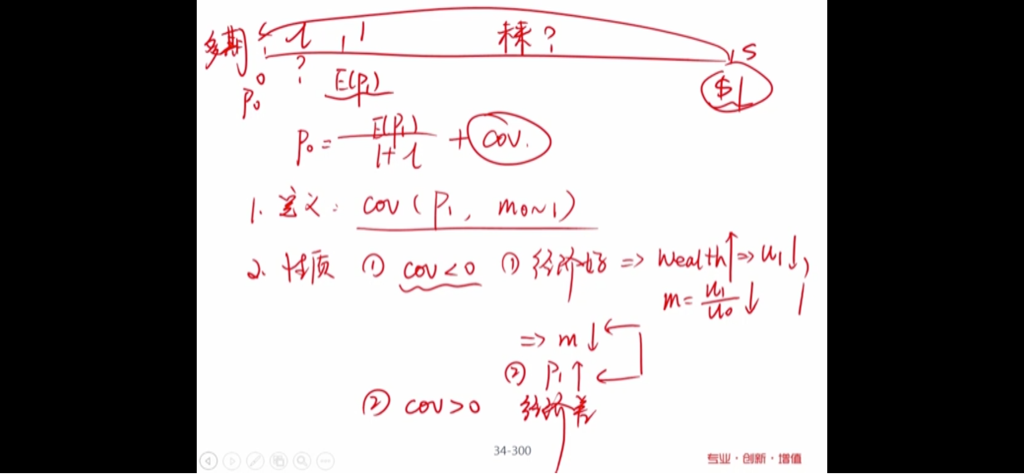 多期 1 未来? s
0 ? $1
P₀ E(P₁)
P₀ = E(P₁) / 1+r + cov.
1. 定义: cov(P₁, m₀~₁)
2. 性质 ① cov<0 ① 经济好 => wealth↑ => u₁↓,
m = u₁/u₀ ↓
=> m↓
② P₁↑
② cov>0 经济差
34-300
专业·创新·增值